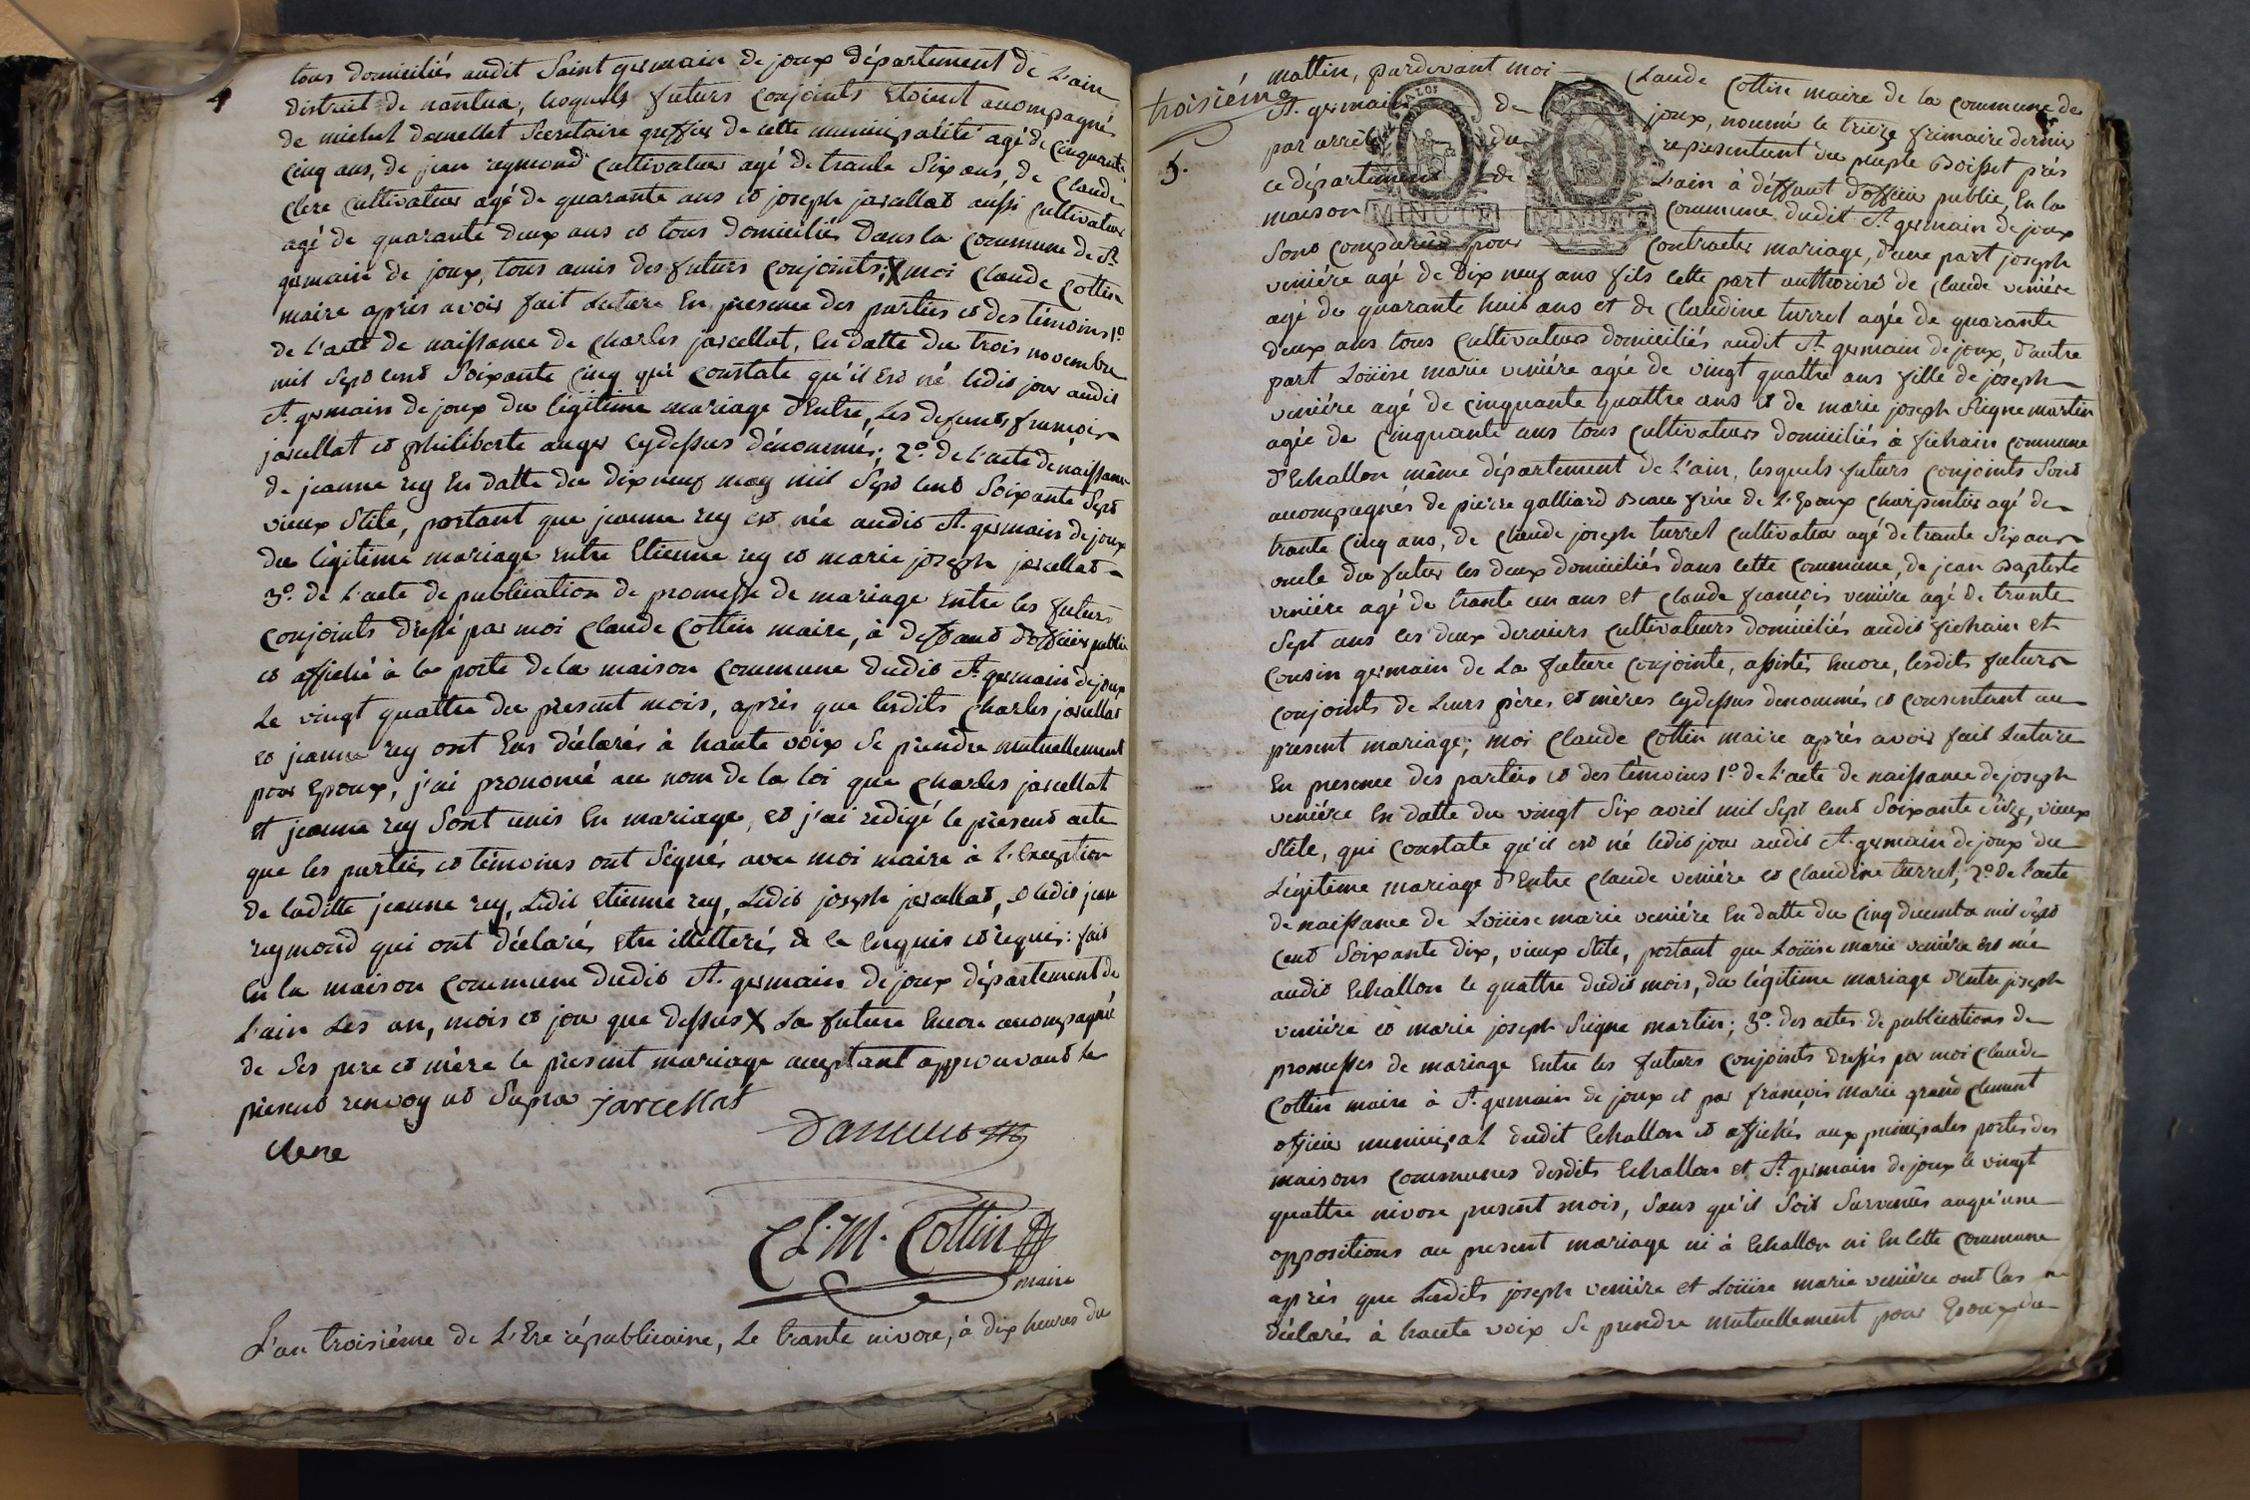 4
tous domiciliés audit Saint germain de joux département de L'ain
district de nantua, lesquels futurs conjoints etoient accompagnés
de michel damellet Secretaire greffier de cette municipalité agé de cinquante
cinq ans, de jean reymond cultivateur agé de trante Six ans, de Claude
Clere cultivateur agé de quarante ans et joseph jarcellat aussi cultivateur
agé de quarante deux ans et tous domiciliés dans la commune de St.
germain de joux, tous amis des futurs conjoints; X moi Claude Cottin
maire après avoir fait Lecture En presence des parties et des témoins 1º
de l'acte de naissance de Charles jarcellat, En datte du trois novembre
mil Sept cent Soixante cinq qui constate qu'il est né ledit jour audit
St. germain de joux du légitime mariage d'Entre, Les defunts francois
jarcellat et philiberte auger cydessus dénommés; 2º. de l'acte de naissance
de jeanne rey En datte du dix neuf may mil Sept cent Soixante Sept
vieux Stile, portant que jeanne rey est née audit St. germain de joux
du légitime mariage entre Etienne rey et marie joseph jarcellat
3º. de L'acte de publication de promesse de mariage Entre les futurs
conjoints dressé par moi Claude Cottin maire, à deffaut d'officier public
et affiché à la porte de la maison commune dudit St. germain de joux
Le vingt quattre du present mois, après que lesdits Charles jarcellat
et jeanne rey ont Eus déclarés à haute voix Se prendre mutuellement
pour Epoux, j'ai prononcé au nom de la loi que Charles jarcellat
Et jeanne rey Sont unis En mariage, et j'ai redigé le present acte
que les parties et témoins ont Signés avec moi maire à L'Exception
de laditte jeanne rey, Ledit Etienne rey, Ledit joseph jarcellat, et ledit jean
reymond qui ont déclarés Etre illitterés de ce Enquis et requis: fait
En la maison commune dudit St. germain de joux département de
L'ain Les an, mois et jour que dessus X La future Encore accompagnée
de Ses pere et mère le present mariage acceptant approuvant le
present renvoy ut Supra jarcellat
Clere
Cl. M. Cottin
maire
L'an troisiéme de L'Ere républicaine, Le trante nivose, à dix heures du
mattin, pardevant moi Claude Cottin maire de la commune de
troisiéme
St. germain de joux, nommé le treize frimaire dernier
par arrêté du representant du peuple Boisset près
5.
ce département de L'ain à déffaut d'officier public, En la
maison commune dudit St. germain de joux
MINUTE MINUTE
Sont comparus pour contracter mariage, d'une part joseph
veniére agé de Dix neuf ans fils cette part authorisé de Claude veniére
agé de quarante huit ans et de Claudine turrel agée de quarante
deux ans tous Cultivateurs domiciliés audit St. germain de joux, d'autre
part Loüise marie veniére agée de vingt quattre ans fille de joseph
veniére agé de Cinquante quattre ans et de marie joseph Seigne martin
agée de Cinquante ans tous Cultivateurs domiciliés à fichain commune
d'Echallon même département de L'ain, lesquels futurs conjoints Sont
accompagnés de pierre galliard Beau frére de L'Epoux Charpentier agé de
trante cinq ans, de Claude joseph turrel Cultivateur agé de trante Six ans
oncle du futur les deux domiciliés dans cette commune, de jean Baptiste
veniére agé de trante un ans Et Claude françois veniére agé de trante
Sept ans ces deux derniers Cultivateurs domiciliés audit fichain et
Cousin germain de La future Conjointe, assistés Encore, lesdits futurs
conjoints de Leurs pères et mères cydessus denommés et consentant au
present mariage; moi Claude Cottin maire après avoir fait Lecture
En presence des parties et des témoins 1º. de L'acte de naissance de joseph
veniére En datte du vingt Six avril mil Sept Cent Soixante Seize, vieux
Stile, qui constate qu'il est né ledit jour audit St. germain de joux du
Légitime mariage d'Entre Claude veniére et Claudine turrel; 2º. de l'acte
de naissance de Loüise marie veniére En datte du Cinq decembre mil Sept
Cent Soixante dix, vieux Stile, portant que Loüise marie veniére est née
audit Echallon le quattre dudit mois, du légitime mariage d'Entre joseph
veniére et marie joseph Seigne martin; 3º. des actes de publications de
promesses de mariage Entre les futurs conjoints dressés par moi Claude
Cottin maire à St. germain de joux et par françois marie grand Clement
officier municipal dudit Echallon et affichés aux principales portes des
maisons communes desdits Echallon et St. germain de joux le vingt
quattre nivose present mois, Sans qu'il Soit Survenüs auqu'une
oppositions au present mariage ni à Echallon ni En cette commune
après que Lesdits joseph veniére et Loüise marie veniére ont Eus
déclarés à haute voix Se prendre mutuellement pour Epoux du